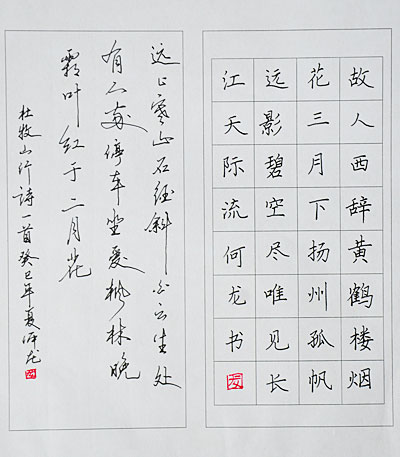 故人西辞黄鹤楼烟
花三月下扬州孤帆
远影碧空尽唯见长
江天际流何龙书
远上寒山石径斜白云生处
有人家停车坐爱枫林晚
霜叶红于二月花
杜牧山行诗一首癸巳年夏何龙